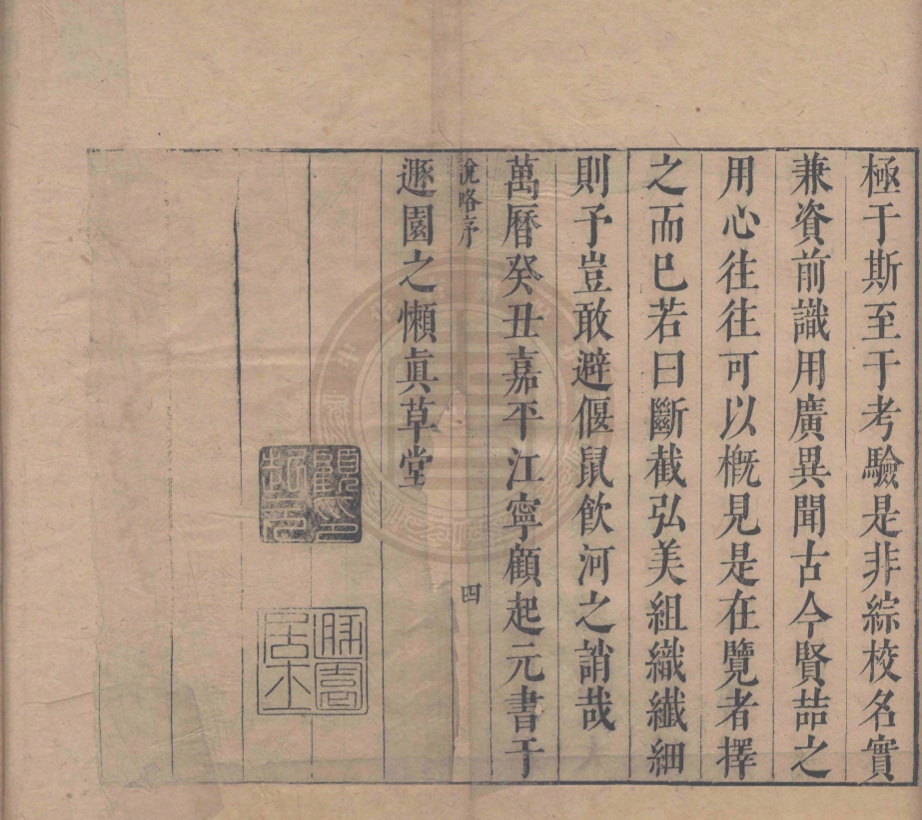 極于斯至于考驗是非綜校名實
兼資前識用廣異聞古今賢喆之
用心往往可以槪見是在覽者擇
之而已若曰斷截弘美組織纎細
則予豈敢避偃鼠飮河之誚哉
萬曆癸丑嘉平江寧顧起元書于
說略序
四
遯園之懶眞草堂
遯園居士